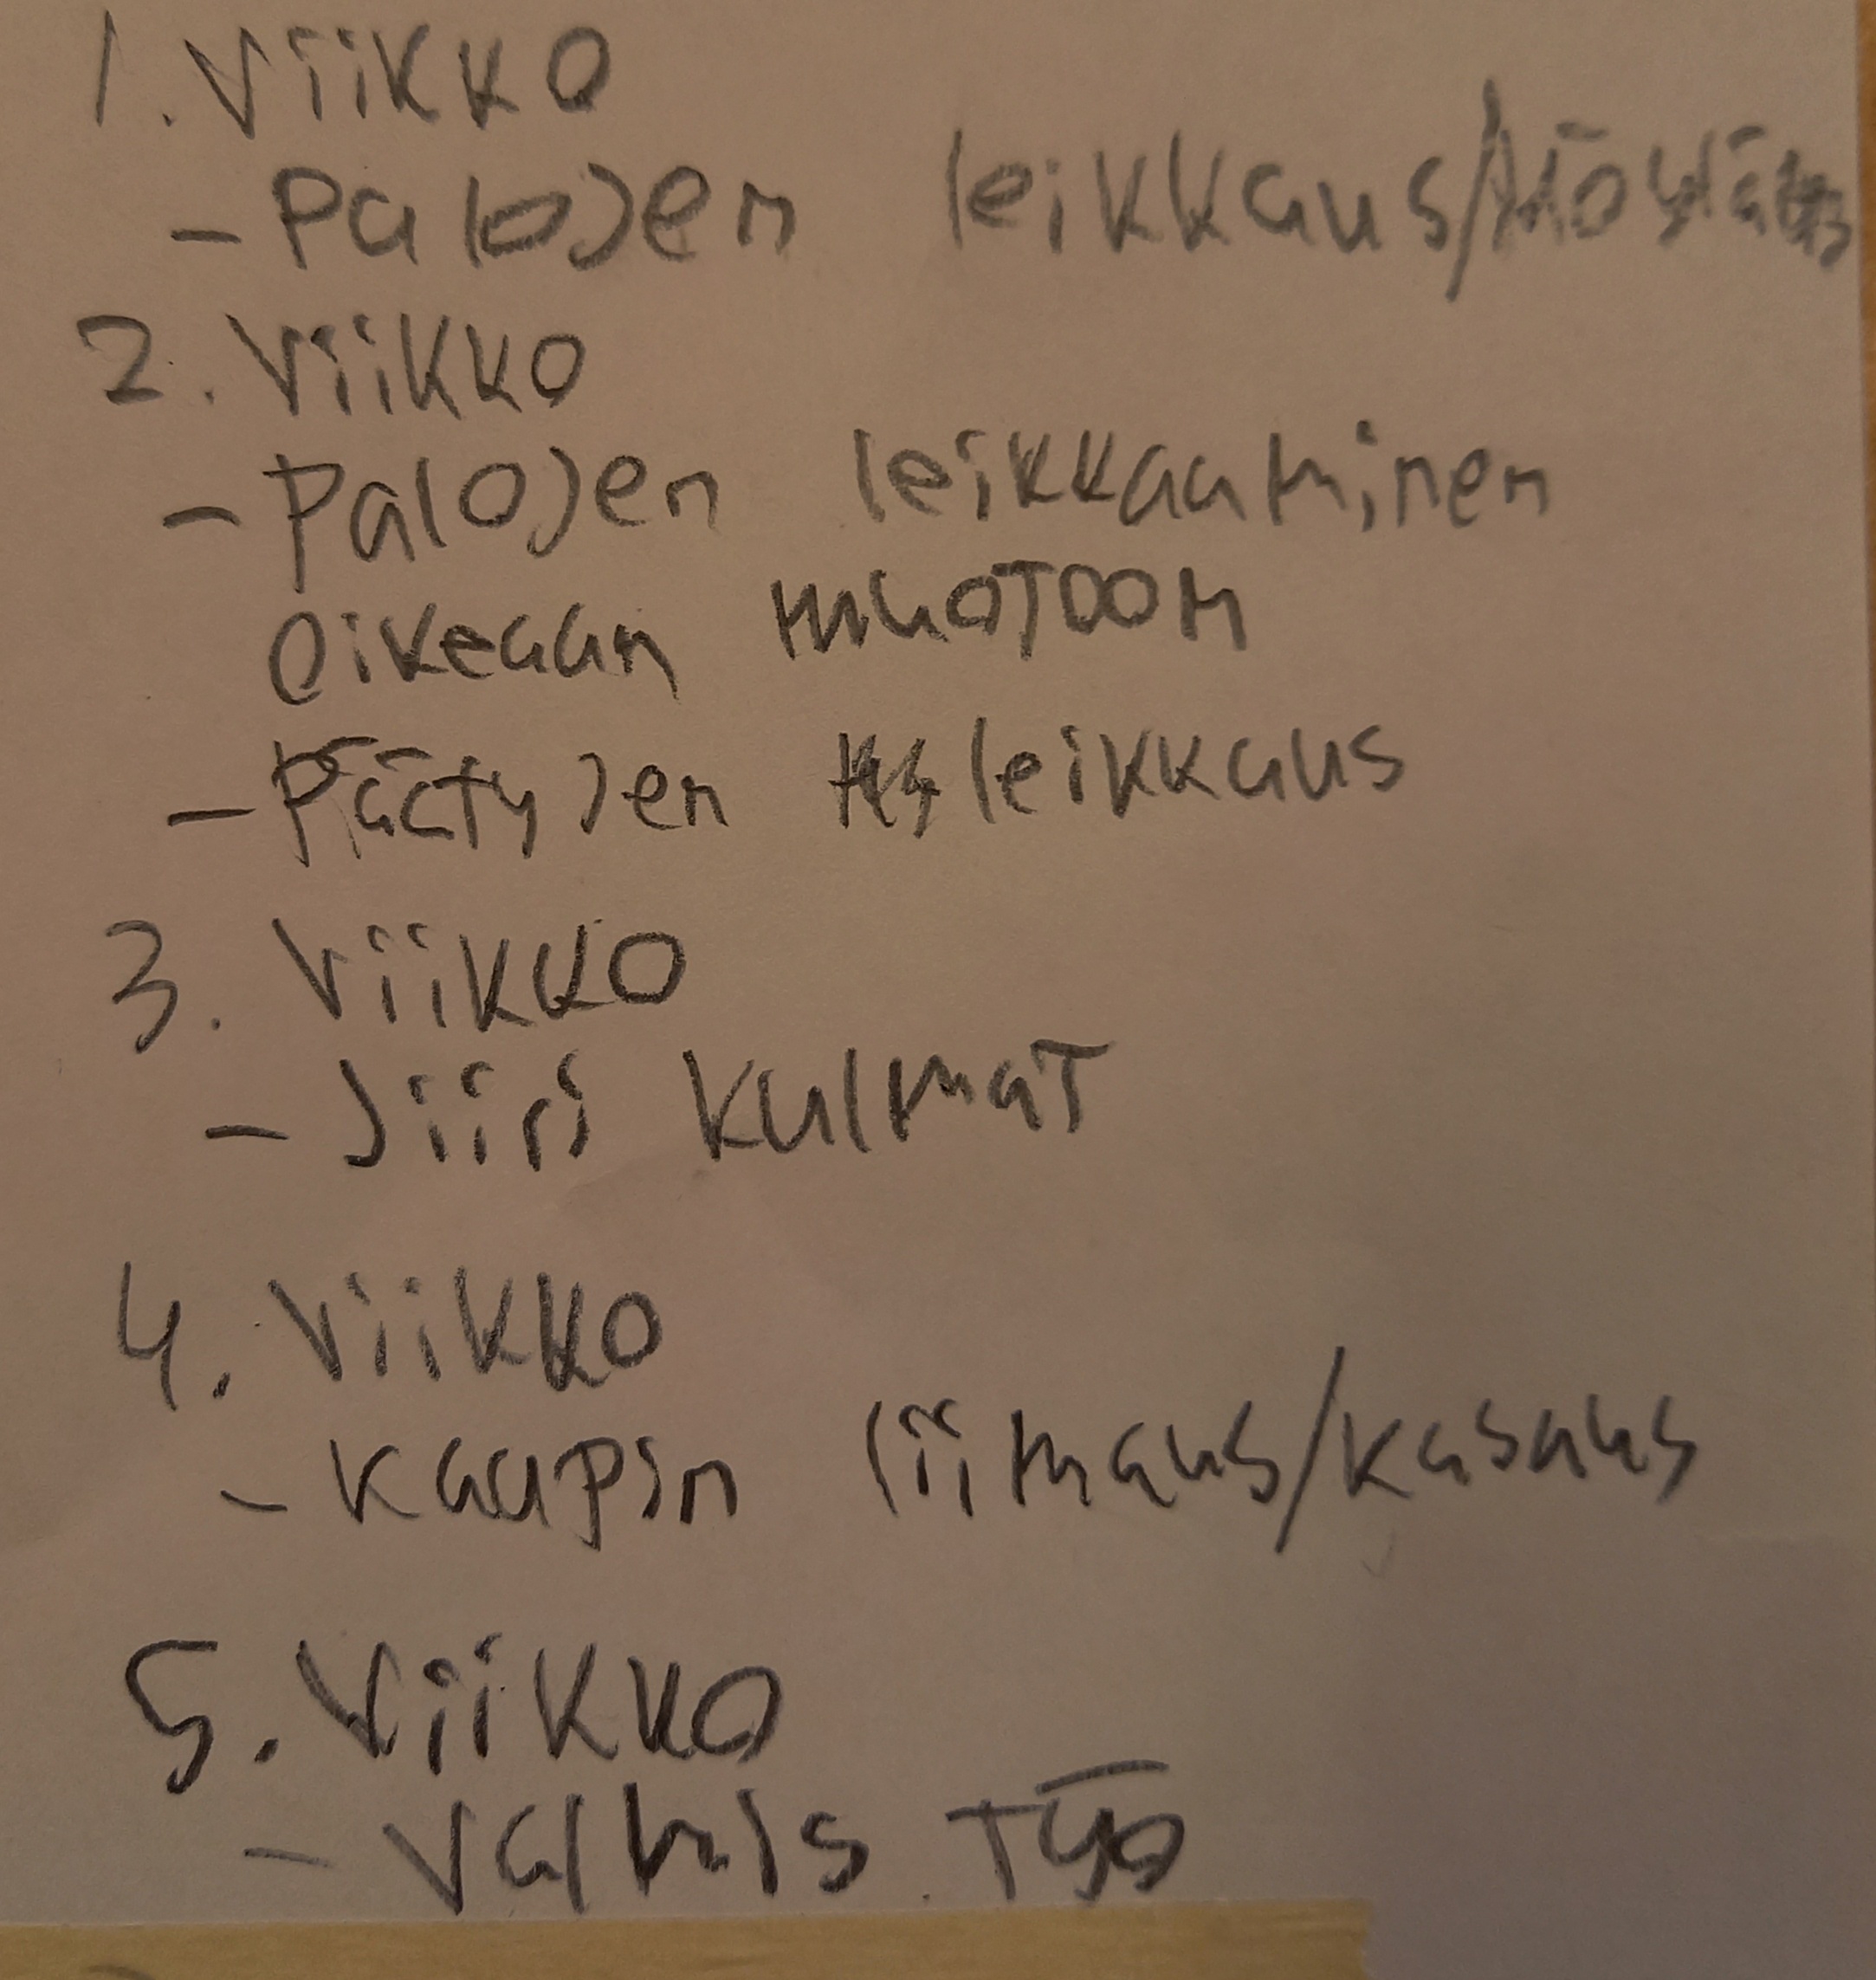 1. Viikko
- Palojen leikkaus/höyläus
2. Viikko
- Palojen leikkaaminen
oikeaan muotoon
- Päätyjen leikkaus
3. Viikko
- Jiiri kulmat
4. Viikko
- Kaapin liimaus/kasaus
5. Viikko
- Valmis työ